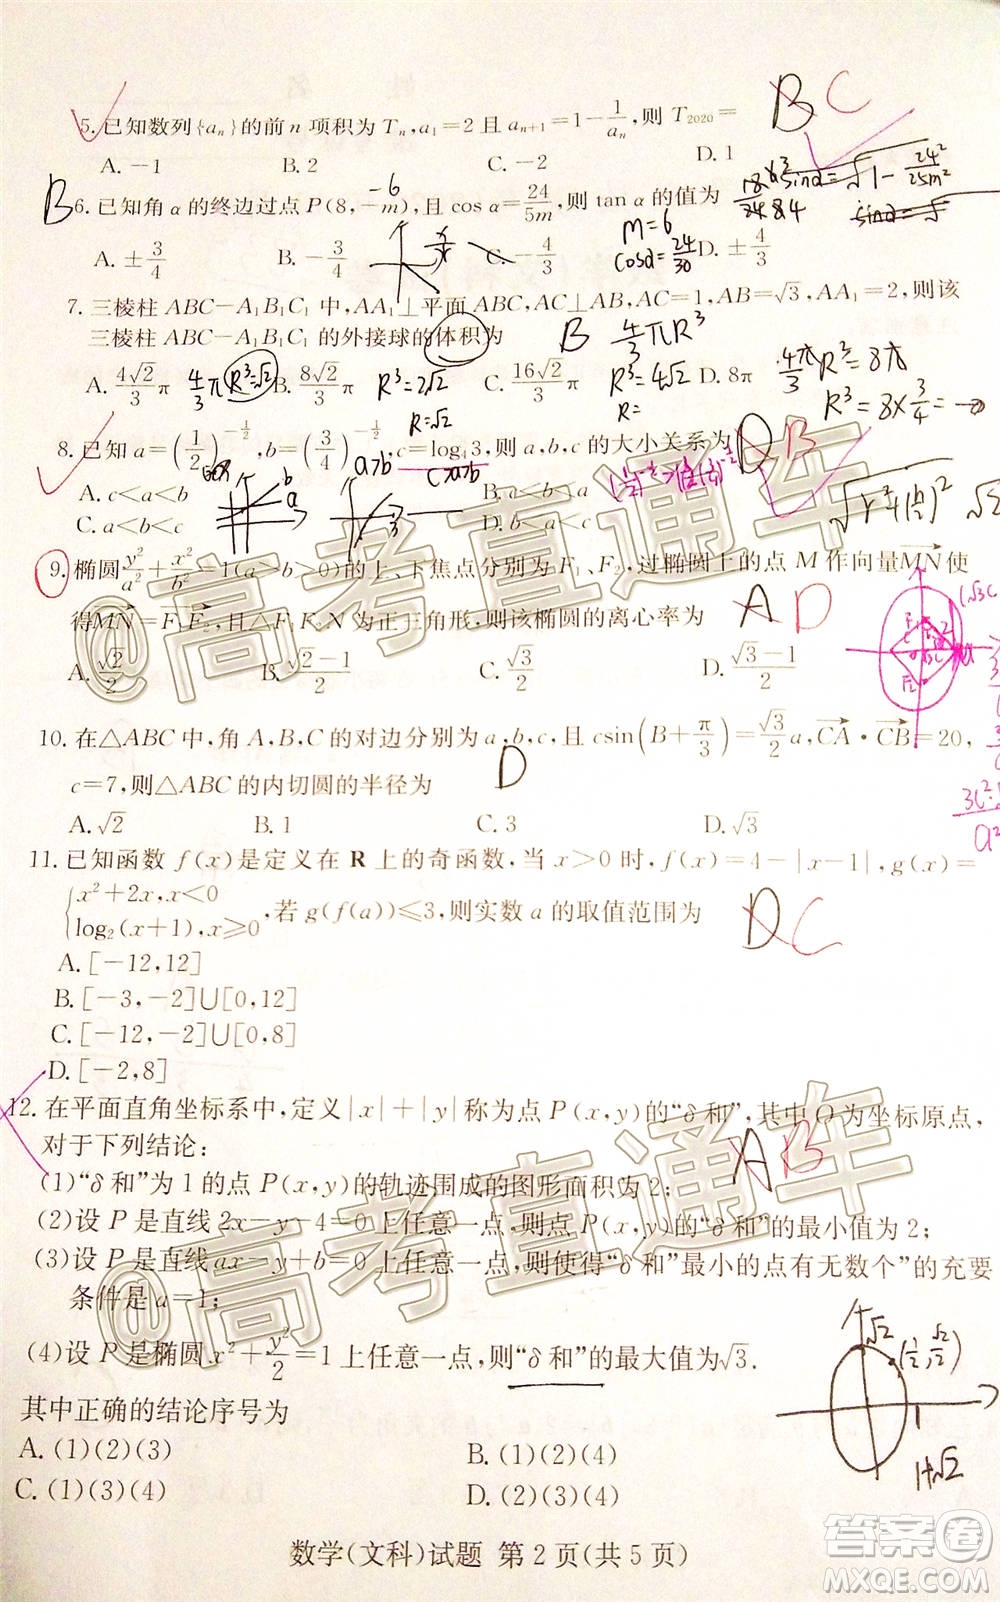 姓 名
5.已知数列{aₙ}的前n项积为Tₙ,a₁=2且aₙ₊₁=1-1/aₙ,则 T₂₀₂₀= B C
A. -1 B. 2 C. -2 D. 1
B 6.已知角α的终边过点P(8,-m),且cos α=24/5m,则tan α的值为
-6
m=6
cosα=24/30
sinα=√1-24²/25m²
A. ±3/4 B. -3/4 C. -4/3 D. ±4/3
7. 三棱柱ABC-A₁B₁C₁中,AA₁⊥平面ABC,AC⊥AB,AC=1,AB=√3,AA₁=2,则该
三棱柱ABC-A₁B₁C₁的外接球的体积为 B 4/3πR³
A. 4√2/3π B. 8√2/3π C. 16√2/3π D. 8π
4/3π R³=√2 R³=2√2 R³=4√2 4/3π R³=8π
R=√2 R= R³=8×3/4=
8.已知a=(1/2)^(-1/2),b=(3/4)^(-1/2),c=log₄3,则a,b,c的大小关系为 D B
a>b c>a>b
A. c<a<b B. c<b<a
C. a<b<c D. b<a<c
9.椭圆y²/a²+x²/b²=1(a>b>0)的上、下焦点分别为F₁、F₂,过椭圆上的点M作向量MN使
得MN=F₁F₂,且△F₁F₂N为正三角形,则该椭圆的离心率为 A D
A. √2/2 B. √2-1/2 C. √3/2 D. √3-1/2
10.在△ABC中,角A,B,C的对边分别为a,b,c,且csin(B+π/3)=√3/2a,CA·CB=20,
c=7,则△ABC的内切圆的半径为 D
A.√2 B. 1 C. 3 D. √3
11.已知函数f(x)是定义在R上的奇函数,当x>0时,f(x)=4-|x-1|,g(x)=
{x²+2x,x<0
log₂(x+1),x≥0 ,若g(f(a))≤3,则实数a的取值范围为 D C
A. [-12,12]
B. [-3,-2]∪[0,12]
C. [-12,-2]∪[0,8]
D. [-2,8]
12.在平面直角坐标系中,定义|x|+|y|称为点P(x,y)的“δ和”,其中O为坐标原点,
对于下列结论: A B
(1)“δ和”为1的点P(x,y)的轨迹围成的图形面积为2;
(2)设P是直线2x-y-4=0上任意一点,则点P(x,y)的“δ和”的最小值为2;
(3)设P是直线ax-y+b=0上任意一点,则使得“δ和”最小的点有无数个”的充要
条件是a=1;
(4)设P是椭圆x²+y²/2=1上任意一点,则“δ和”的最大值为√3.
√2
(1/2,√2/2)
1
1+√2
其中正确的结论序号为
A. (1)(2)(3) B. (1)(2)(4)
C. (1)(3)(4) D. (2)(3)(4)
数学(文科)试题 第2页(共5页)
@高考直通车
@高考直通车
答案圈
MXQE.COM